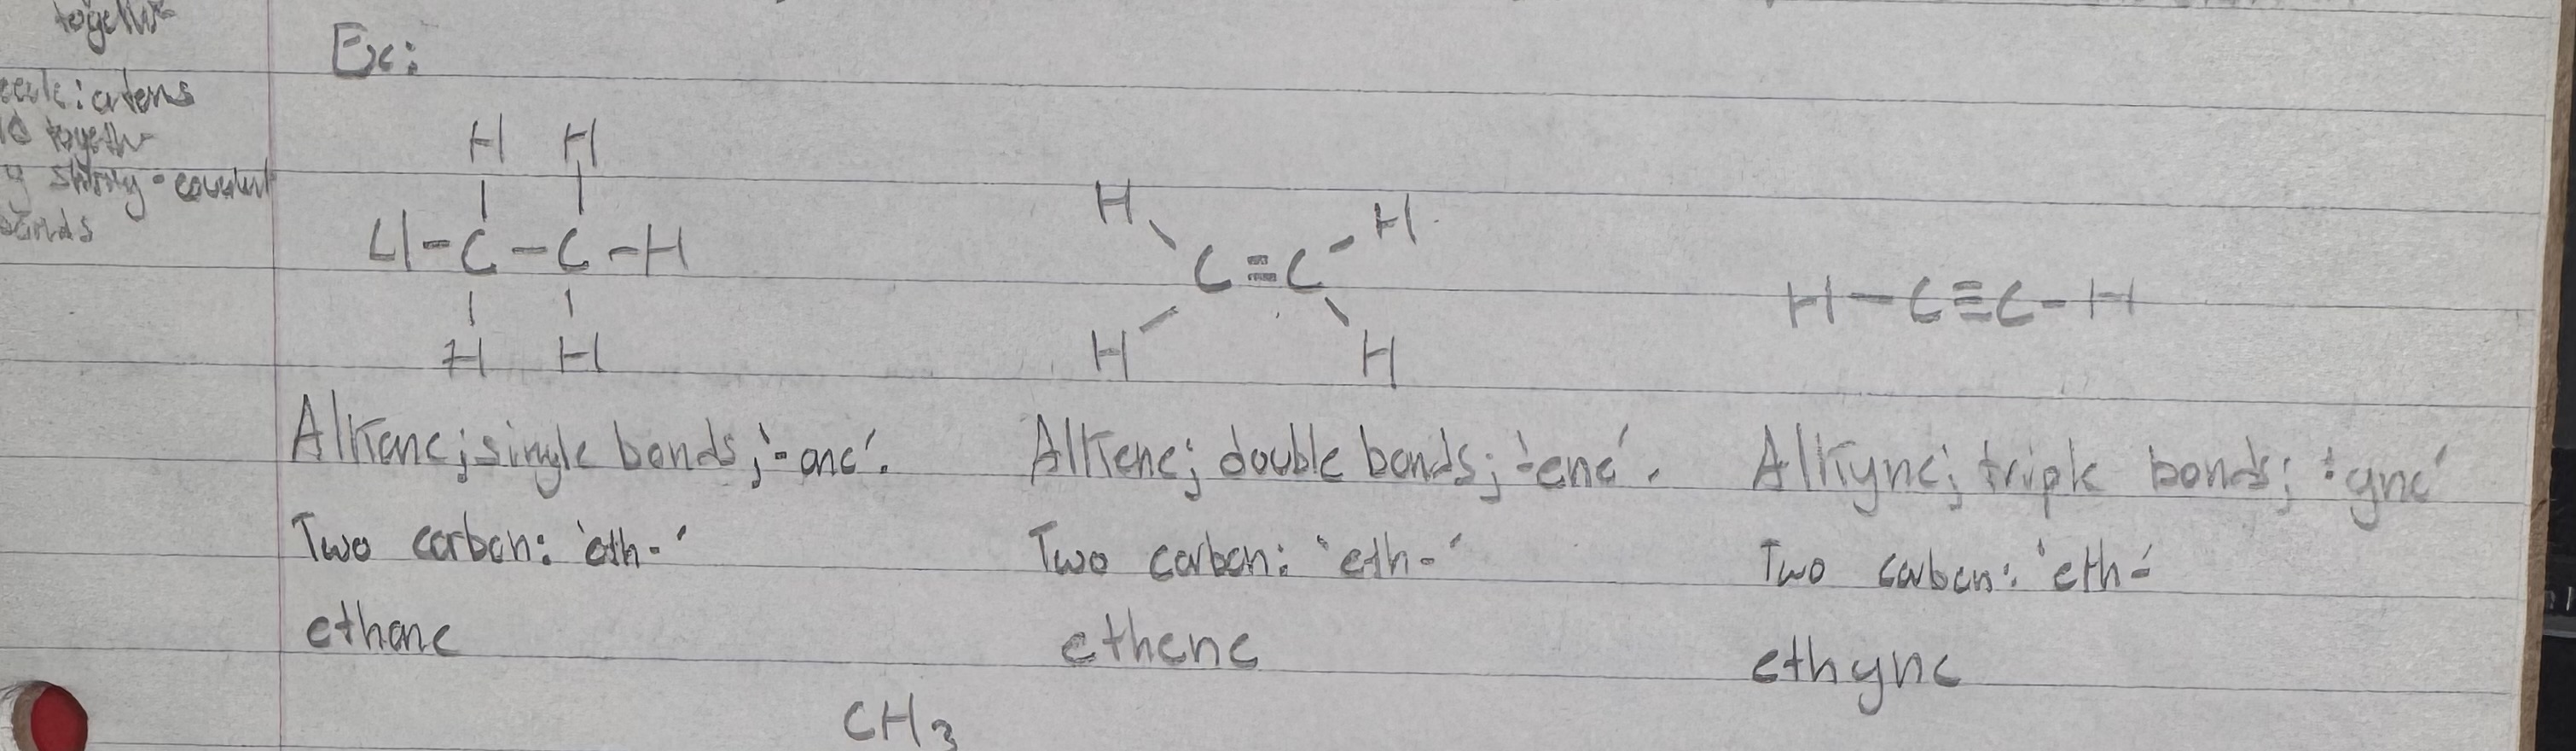 together
atoms
together
strong-covalent
bonds
Ex:
H H
Cl-C-C-H
H H
H H
C=C
H H
H-C≡C-H
Alkane; single bonds; '-ane'.
Two carbon: 'eth-'
ethane
Alkene; double bonds; '-ene'.
Two carbon: 'eth-'
ethene
Alkyne; triple bonds; '-yne'
Two carbon: 'eth-'
ethyne
CH3